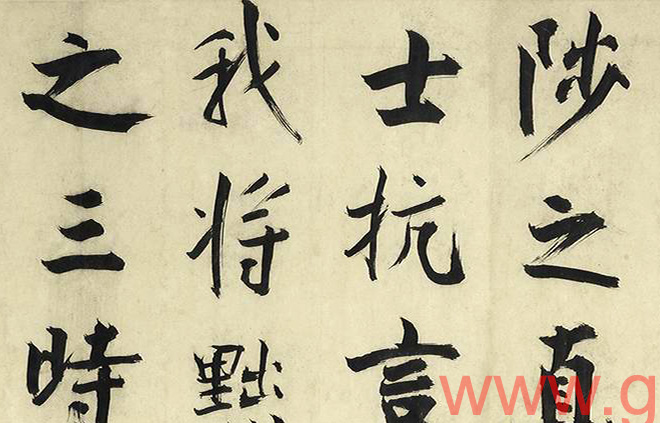 陟之直
士抗言
我将黜
之三時
www.g